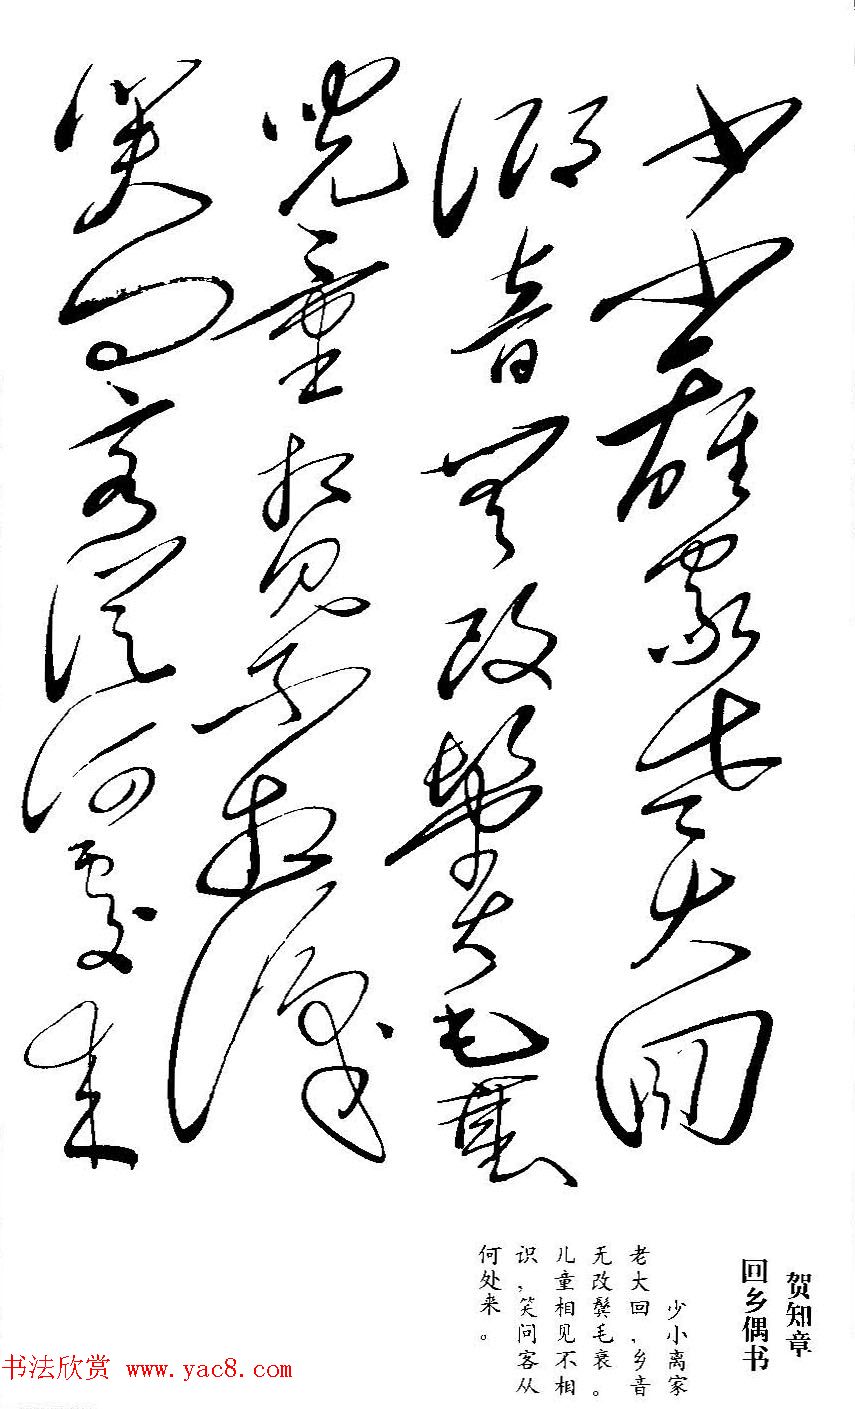 少小離家老大回
鄉音無改鬢毛衰
兒童相見不相識
笑問客從何處來
贺知章
回乡偶书
少小离家
老大回，乡音
无改鬓毛衰。
儿童相见不相
识，笑问客从
何处来。
书法欣赏 www.yac8.com